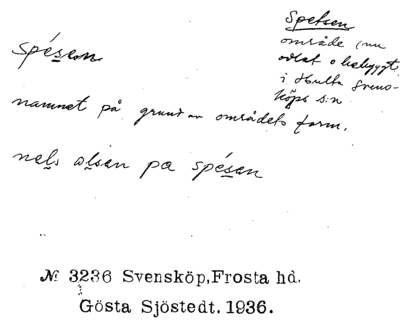 Spetsen
område (nu
odlat o bebyggt
i Hults Svens-
köps s:n
spésen
namnet på grund av områdets form.
nels olsen pa spésen
№ 3236 Svensköp,Frosta hd.
Gösta Sjöstedt. 1936.